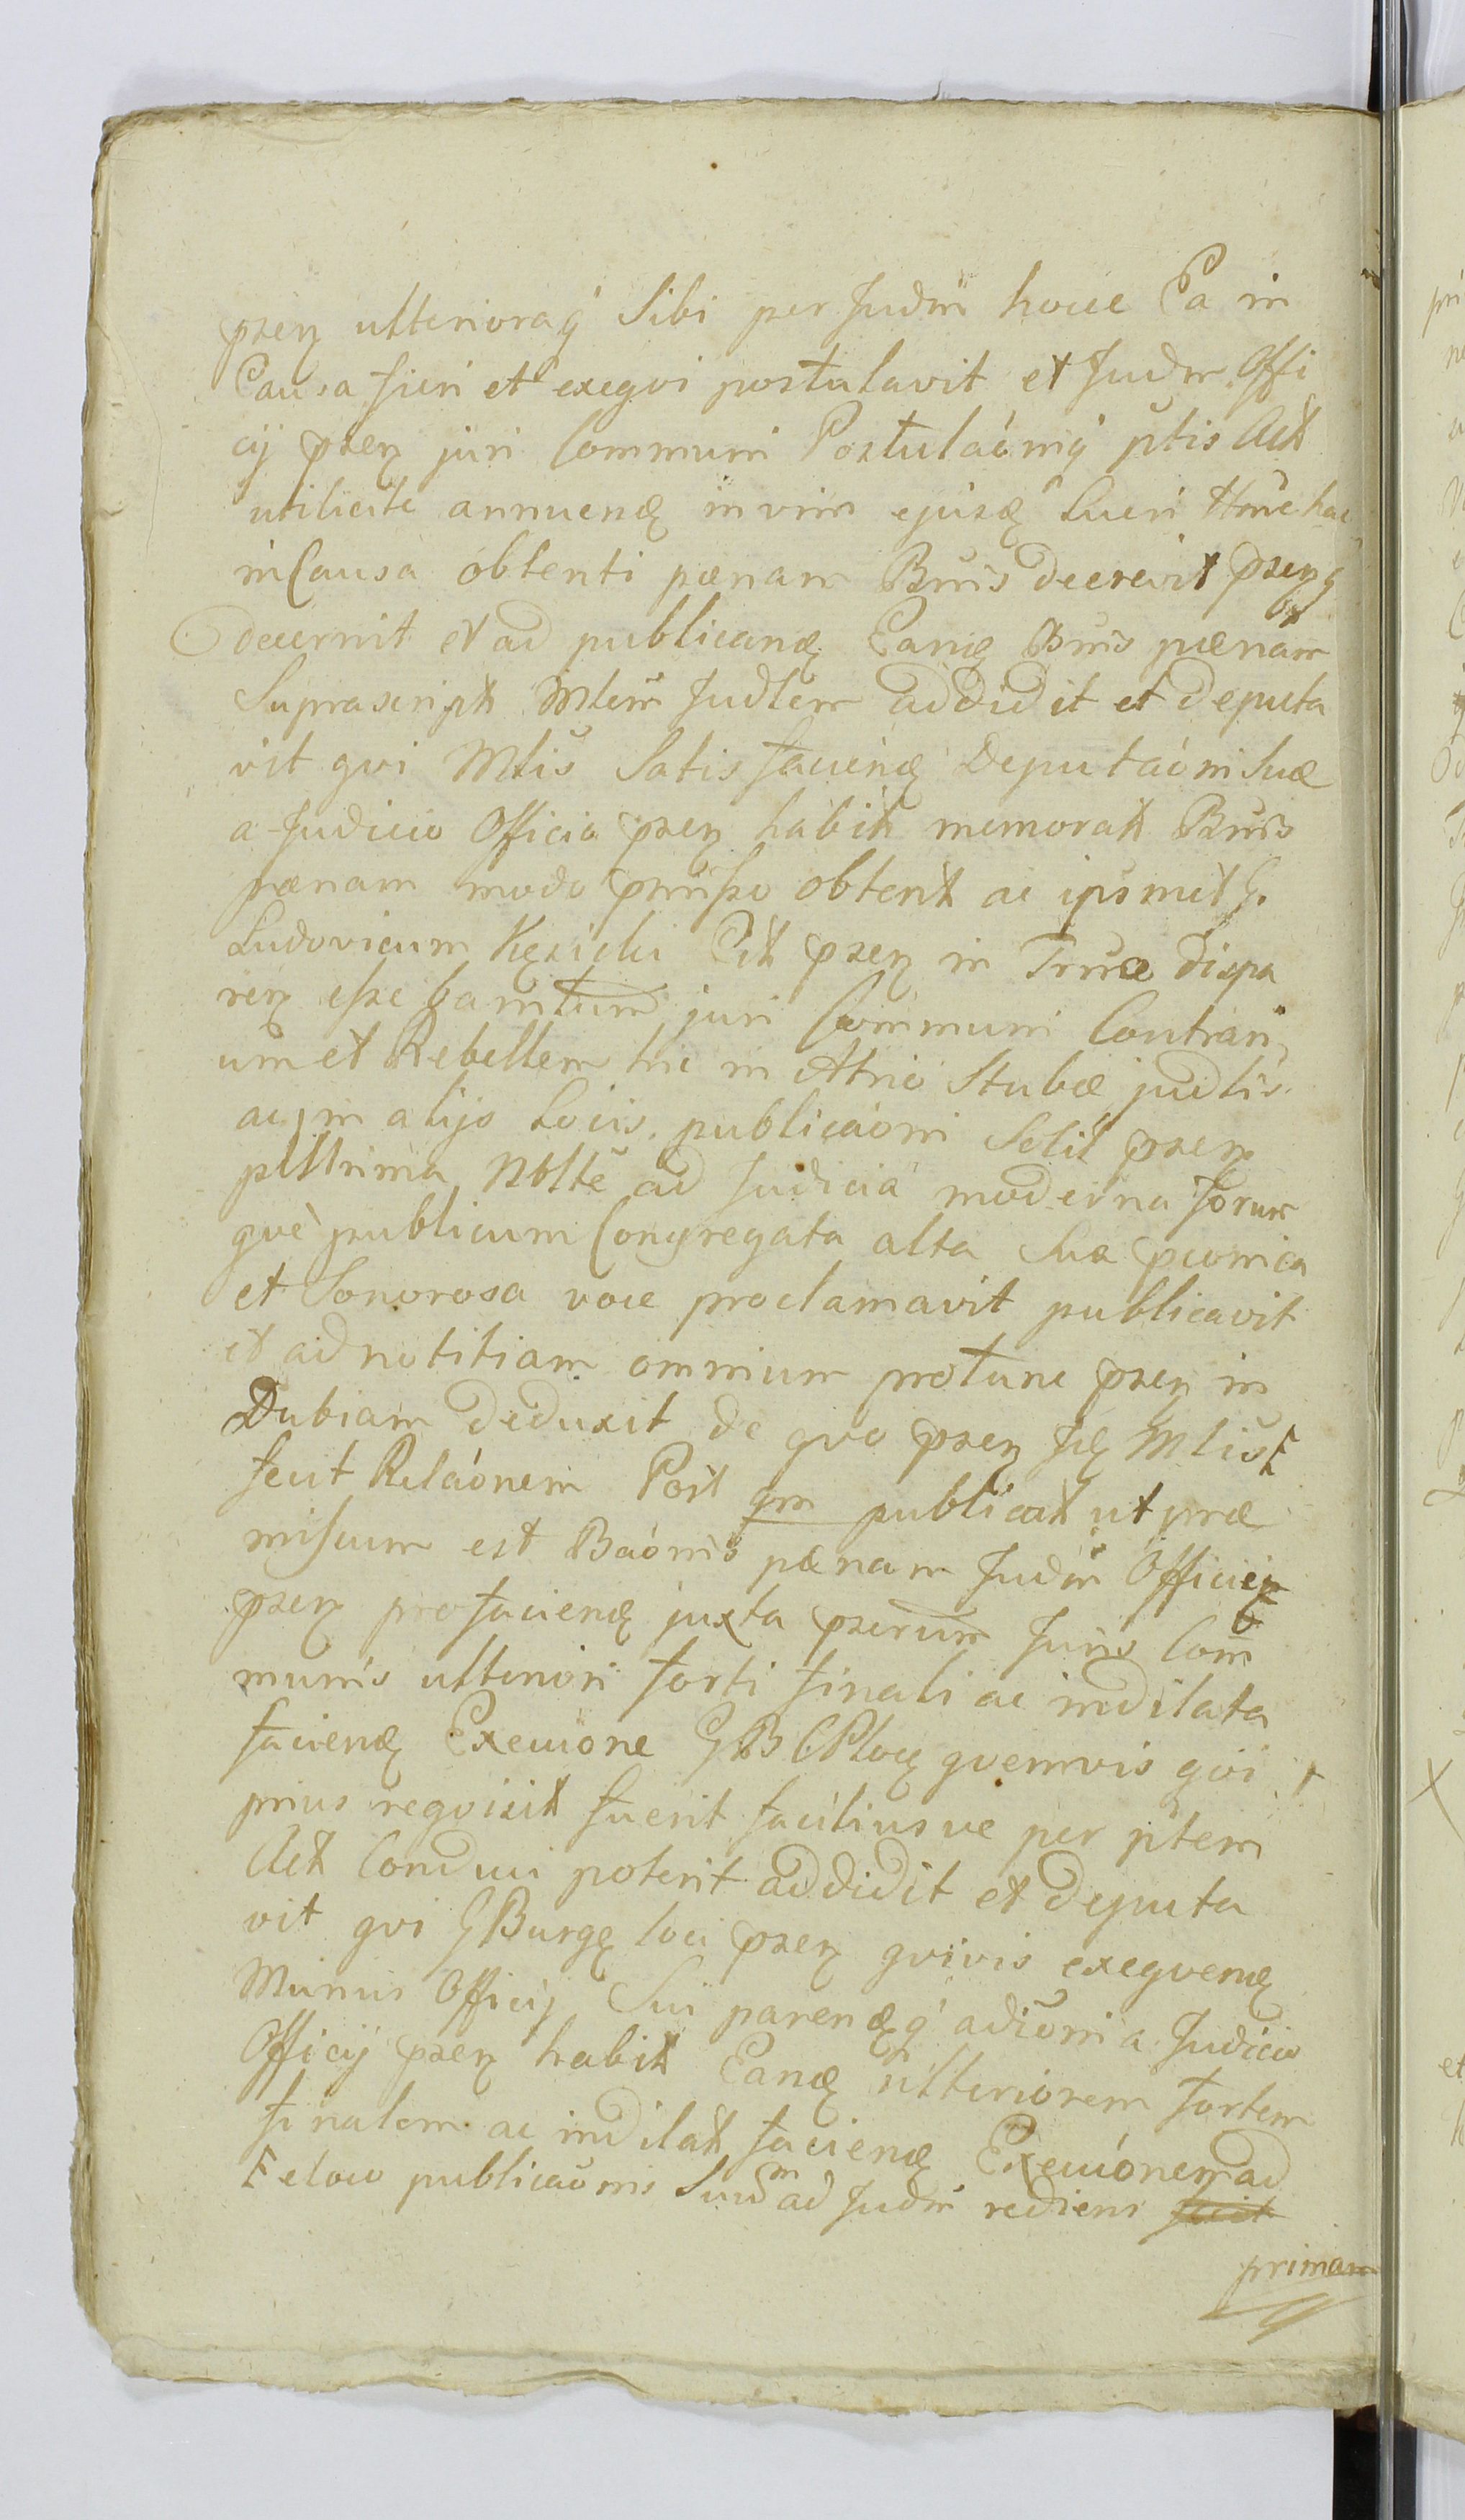 przn ulterioraq Sibi per Judm hocce Ca in
Causa fieri et exeqvi postulavit et Judm Offi
cij przn juri Communi Postulaóniq ptis Act
utilicite annuend in vim ejusd Lucri Hnie hac
in Causa obtenti pœnam Bnis decrevit przq
decernit et ad publicand Eand Bnis pœnam
Suprascript Mlem Judlem addidit et deputa
vit qvi Mlis Satisfaciend Deputaóni Suæ
a Judicio Officio przn habit memorat Bnis
pœnam modo prmsso obtent ac ipsmet G.
Ludovicum Kęsicki Cit przn in Trnœ dispa
ren esse bannitum juri Communi Contrari
um et Rebellem hic in Atrio Stubæ judlis
ac in alijs Locis publicaóni Solit przn
plurima Nblte ad Judicia moderna forum
qvè publicum Congregata alta Sua pconica
et Sonorosa voce proclamavit publicavit
et ad notitiam omnium protunc przn in
Dubiam deduxit de qvo przn Jd Mlis
fecit Relaónem Post qm publicat ut præ
missum est Baónis pœnam Judm Officij
przn pro faciend juxta przrium Juris Com
munis ulteriori forti finali ac indilata
faciend Execuone GB CPloc qvemvis qvi
prius reqvisit fuerit faciliusve per ptem
Act Conduci poterit addidit et deputa
vit qvi GBurg loci przn qvivis exeqvend
Munus Officij Sui parendq adióni a Judicio
Officij przn habit Eand ulteriorem fortem
finalem ac indilat faciend Execuónem ad
E eloco publicaónis Suu ad Judm rediens fecit
primam